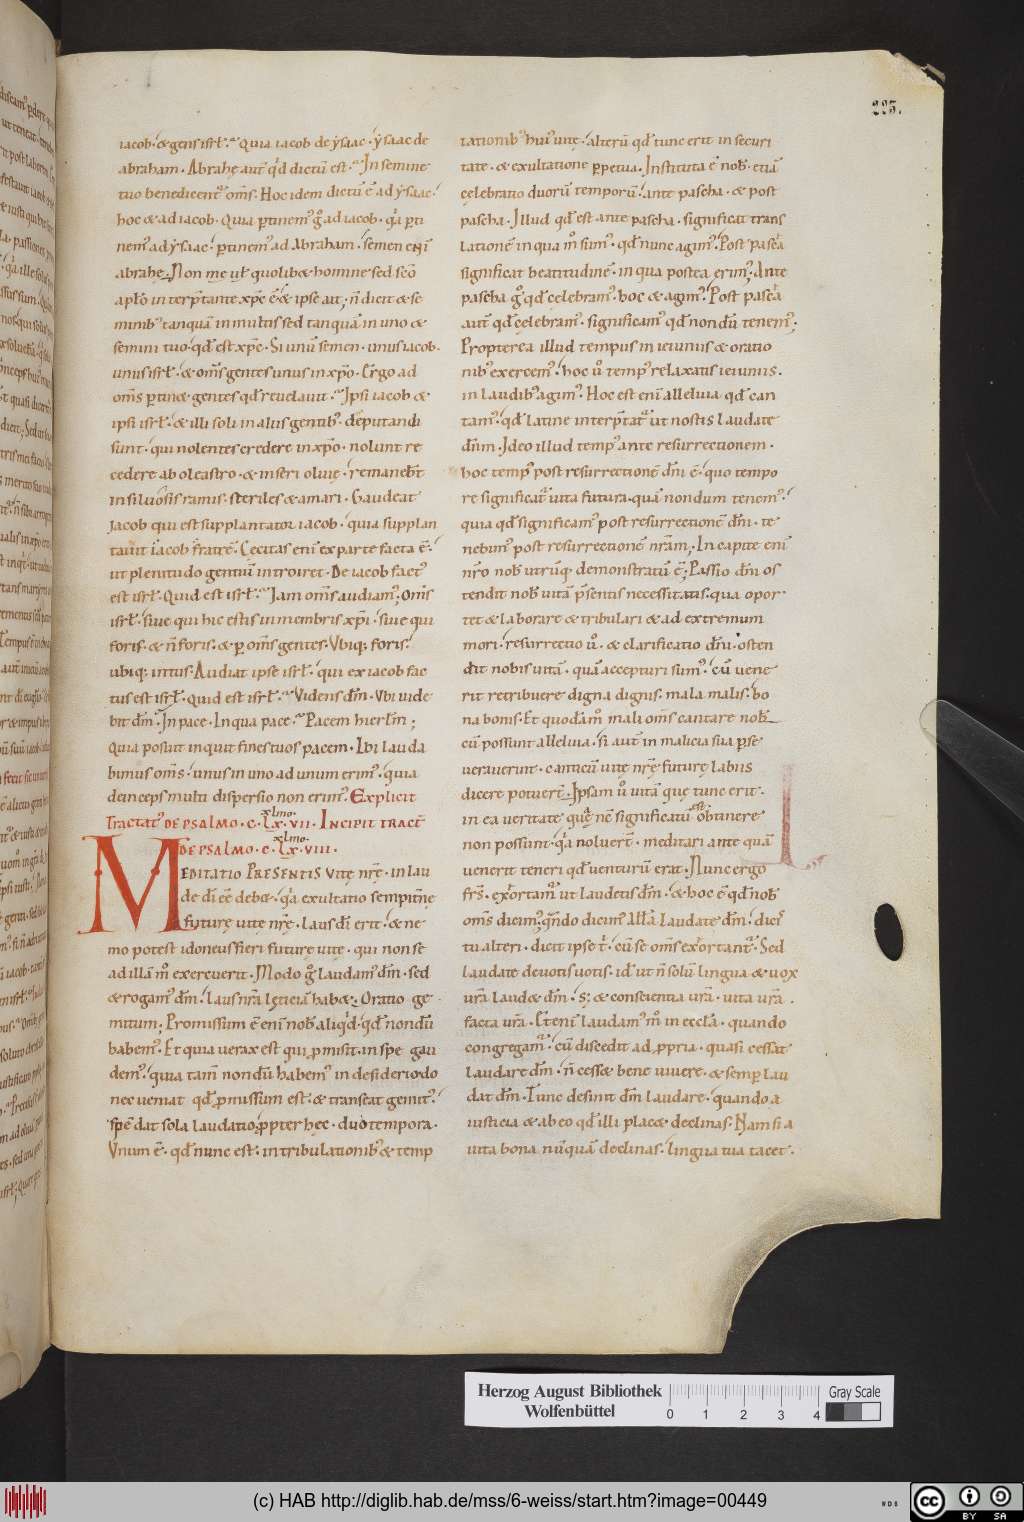 225.
iacob · & gens isrł. Quia iacob de ysaac · ysaac de
abraham · Abrahę aut̄ qd dictū est · In semine
tuo benedicent᷒ om̄s · Hoc idem dictū ē ad ysaac ·
hoc & ad iacob · Quia ꝑtinem᷒ g̊ ad iacob · qa ꝑti
nem᷒ ad ysaac · ꝑtinem᷒ ad Abraham · semen eni
abrahę · Non me uł quolib& homine sed sc̄o
apło interp̄tante xp̄c ē · & ipse ait; n̄ dicit & se
minib᷒ tanquā in multis sed tanquā in uno &
semini tuo · qd est xp̄c · Si unū semen · unus iacob ·
unus isrł · & om̄s gentes unus in xp̄o · Ergo ad
om̄s ꝑtin& gentes qd reuelauit · Ipsi iacob &
ipsi isrł · & illi soli in aliis gentib᷒ deputandi
sunt · qui nolentes credere in xp̄o · nolunt re
cedere ab oleastro · & inseri oliuę · remanebt̄
in siluosis ramis · steriles & amari · Gaudeat
Jacob qui est supplantator iacob · quia supplan
tauit iacob fratrē · Cecitas eni ex parte facta ē ·
ut plenitudo gentiū introiret · De iacob fact᷒
est isrł · Quid est isrł · Iam om̄s audiam᷒; Om̄s
isrł · siue qui hic estis in membris xp̄i · siue qui
foris · & n̄ foris · & ꝑ om̄s gentes · Vbiq; foris ·
ubiq; intus · Audiat ipse isrł · qui ex iacob fac
tus est isrł · Quid est isrł · Videns dm̄ · Vbi uide
bit dm̄ · In pace · In qua pace · Pacem hierłm;
Quia posuit inquit fines tuos pacem · Ibi lauda
bimus om̄s · unus in uno ad unum erim᷒ · quia
deinceps multi dispersio non erim᷒ · Explicit
Tractat᷒ DE PSALMO · C · LX · VII · Incipit tract̄
DE PSALMO · C · LX · VIII ·
MEDITATIO PRESENTIS vitę nr̄ę · in lau
de di eē deb& · qa exultatio sempit̄nę
futurę uitę nr̄ę · laus di erit · & ne
mo potest idoneus fieri futurę uitę · qui non se
ad illā m̊ exercuerit · Modo g̊ laudam᷒ dm̄ · sed
& rogam᷒ dm̄ · laus nr̄a lęticiā hab& · Oratio ge
mitum; Promissum ē eni nob aliqd · qd nondū
habem᷒ · Et quia uerax est qui ꝓmisit · in spe gau
dem᷒ · quia tam̄ nondū habem᷒ in desiderio do
nec ueniat qd ꝓmissum est · & transeat gemit᷒ ·
spē dat sola laudatio ꝓpter hęc · duo tempora ·
Vnum ē · qd nunc est · in tribulationib᷒ & temp
tationib᷒ hui᷒ uitę · alterū qd tunc erit in securi
tate · & exultatione ꝑpetua · Instituta ē nob · etiā
celebratio duorū temporū · ante pascha · & post
pascha · Illud qd est ante pascha · significat trans
lationē in qua m̊ sum᷒ · qd nunc agim᷒ · Post pasca
significat beatitudinē · in qua postea erim᷒; Ante
pascha g̊ qd celebram᷒ · hoc & agim᷒ · Post pasca
aut̄ qd celebram᷒ · significam᷒ qd nondū tenem᷒;
Propterea illud tempus in ieiuniis & oratio
nib᷒ exercem᷒ · hoc ů temp᷒ relaxatis ieiuniis ·
in laudib᷒ agim᷒ · Hoc est eni alleluia qd can
tam᷒ · qd latine interp̄tat᷒ ut nostis laudate
dn̄m · Ideo illud temp᷒ ante resurrectionem ·
hoc temp᷒ post resurrectionē dn̄i ē · quo tempo
re significat᷒ uita futura · quā nondum tenem᷒ ·
quia qd significam᷒ post resurrectionē dn̄i · te
nebim᷒ post resurrectionē nr̄am; In capite eni
nr̄o nob utrūq; demonstratū ē; Passio dn̄i os
tendit nob uitā p̄sentis necessitatis · qua opor
tet & laborare & tribulari & ad extremum
mori · resurrectio ů · & clarificatio dn̄i · osten
dit nobis uitā · quā accepturi sum᷒ · cū uene
rit retribuere digna dignis · mala malis · bo
na bonis · Et quodam̊ mali om̄s cantare nob
cū possunt alleluia · si aut̄ in malicia sua ꝑse
uerauerint · canticū uitę nr̄ę futurę labiis
dicere poter̄t · Ipsam ů uitā quę tunc erit ·
in ea ueritate quę nc̄ significatū est obtinere
non possunt · qa noluer̄t · meditari ante quā
uenerit teneri qd uenturū erat · Nunc ergo
frs̄ · exortam᷒ ut laudetis dm̄ · & hoc ē qd nob
om̄s dicim᷒; qn̄do dicim᷒ alla Laudate dm̄ · dicis
tu alteri · dicit ipse t̊ · cū se om̄s exortant᷒ · Sed
laudate deuotis uotis · id ut n̄ solū lingua & uox
ur̄a laud& dm̄ · s; & conscientia ur̄a · uita ur̄a ·
facta ur̄a · Eteni laudam᷒ m̊ in eccla · quando
congregam᷒ · cū discedit ad ꝓpria · quasi cessat
laudare dm̄ · n̄ cess& bene uiuere · & semꝑ lau
dat dm̄ · Tunc desinit dm̄ laudare · quando a
iusticia & ab eo qd illi plac& declinas · Nam si a
uita bona nūquā declinas · lingua tua tacet ·
Herzog August Bibliothek
Wolfenbüttel
0 1 2 3 4
Gray Scale
(c) HAB http://diglib.hab.de/mss/6-weiss/start.htm?image=00449
WDB
cc BY SA